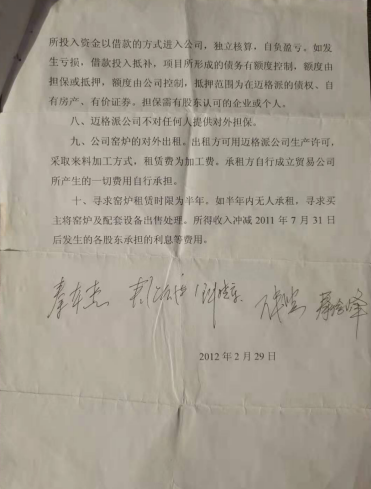 所投入资金以借款的方式进入公司，独立核算，自负盈亏。如发
生亏损，借款投入抵补，项目所形成的债务有额度控制，额度由
担保或抵押，额度由公司控制，抵押范围为在迈格派的债权、自
有房产、有价证券。担保需有股东认可的企业或个人。
八、迈格派公司不对任何人提供对外担保。
九、公司窑炉的对外出租。出租方可用迈格派公司生产许可，
采取来料加工方式，租赁费为加工费。承租方自行成立贸易公司
所产生的一切费用自行承担。
十、寻求窑炉租赁时限为半年。如半年内无人承租，寻求买
主将窑炉及配套设备出售处理。所得收入冲减 2011 年 7 月 31 日
后发生的各股东承担的利息等费用。
2012 年 2 月 29 日